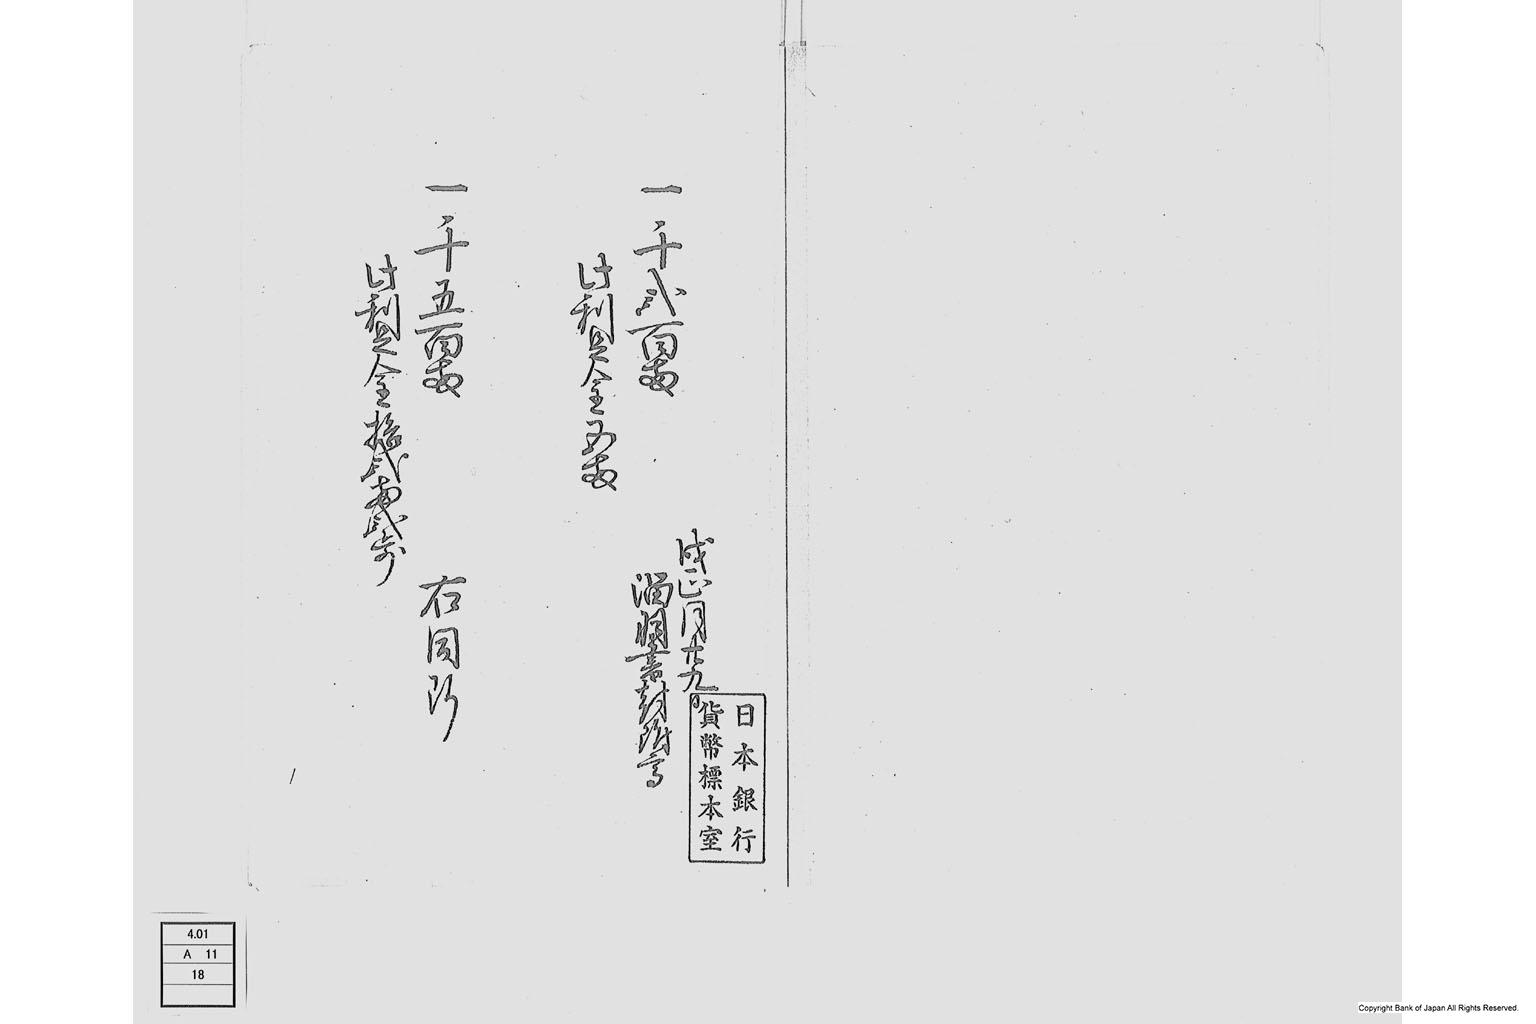 一千弐百両
此利足金五両
戌正月廿九日
一千五百両
此利足金拾弐両弐歩
右同断
日本銀行
貨幣標本室
4.01
A 11
18
Copyright Bank of Japan All Rights Reserved.